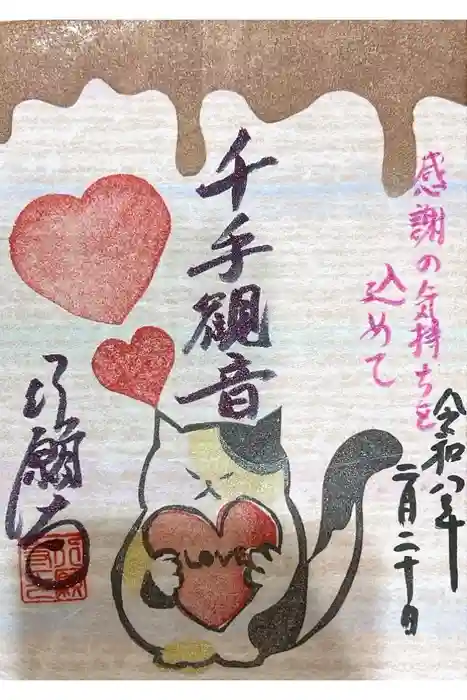 感謝の気持ちを
込めて
令和八年
二月二十日
千手観音
LOVE
行願寺